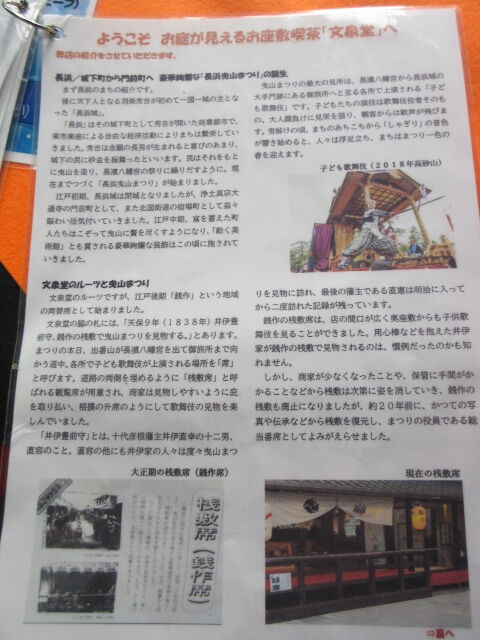 ようこそ お庭が見えるお座敷喫茶「文泉堂」へ
弊店の紹介をさせていただきます。
長浜／城下町から門前町へ 豪華絢爛な「長浜曳山まつり」の誕生
まず長浜のまちの紹介です。
後に天下人となる羽柴秀吉が初めて一国一城の主となった「長浜城」。
「長浜」はその城下町として秀吉が開いた商業都市で、
楽市楽座による自由な経済活動によりまちは繁栄してい
きました。秀吉は念願の長男が生まれると喜びのあまり、
城下の民に砂金を振舞ったといいます。民はそれをもと
に曳山を造り、長濱八幡宮の祭りに繰りだすように。現
在までつづく「長浜曳山まつり」が始まりました。
江戸初期、長浜城は閉城となりましたが、浄土真宗大
通寺の門前町として、また北国街道の宿場町として益々
賑わい活気付いていきました。江戸中期、富を蓄えた町
人たちはこぞって曳山に贅を尽くすようになり、「動く美
術館」とも賞される豪華絢爛な装飾はこの頃に施されて
いきました。
曳山まつりの最大の見所は、長濱八幡宮から長浜城の
大手門跡にある御旅所へと至る各所で上演される「子ど
も歌舞伎」です。子どもたちの演技は歌舞伎役者そのも
の。大人顔負けに見栄を張り、観客からは歓声が飛びま
す。雪解けの頃、まちのあちこちから「しゃぎり」の音色
が響き始めると、人々は浮足立ち、まちはまつり一色の
春を迎えます。
子ども歌舞伎（２０１８年高砂山）
文泉堂のルーツと曳山まつり
文泉堂のルーツですが、江戸後期「銭作」という地域
の両替商として始まりました。
文泉堂の脇の札には、「天保９年（１８３８年）井伊豊
前守、銭作の桟敷で曳山まつりを見物する。」とあります。
まつりの本日、出番山が長濱八幡宮を出て御旅所まで向
かう道中。各所で子ども歌舞伎が上演される場所を「席」
と呼びます。道路の両側を埋めるように「桟敷席」と呼
ばれる観覧席が用意され、商家は見物しやすいように庇
を取り払い、相撲の升席のようにして歌舞伎の見物を楽
しんでいました。
「井伊豊前守」とは、十代彦根藩主井伊直幸の十二男、
直容のこと。直容の他にも井伊家の人々は度々曳山まつ
りを見物に訪れ、最後の藩主である直憲は明治に入って
から二度訪れた記録が残っています。
銭作の桟敷席は、店の間口が広く奥座敷からも子供歌
舞伎を見ることができました。用心棒などを抱えた井伊
家が銭作の桟敷で見物されるのは、慣例だったのかも知
れません。
しかし、商家が少なくなったことや、保管に手間がか
かることなどから桟敷は次第に姿を消していき、銭作の
桟敷も廃止になりましたが、約２０年前に、かつての写
真や伝承などから桟敷を復元し、まつりの役員である総
当番席としてよみがえらせました。
大正期の桟敷席（銭作席）
桟敷席（銭作席）
現在の桟敷席
⇒裏へ